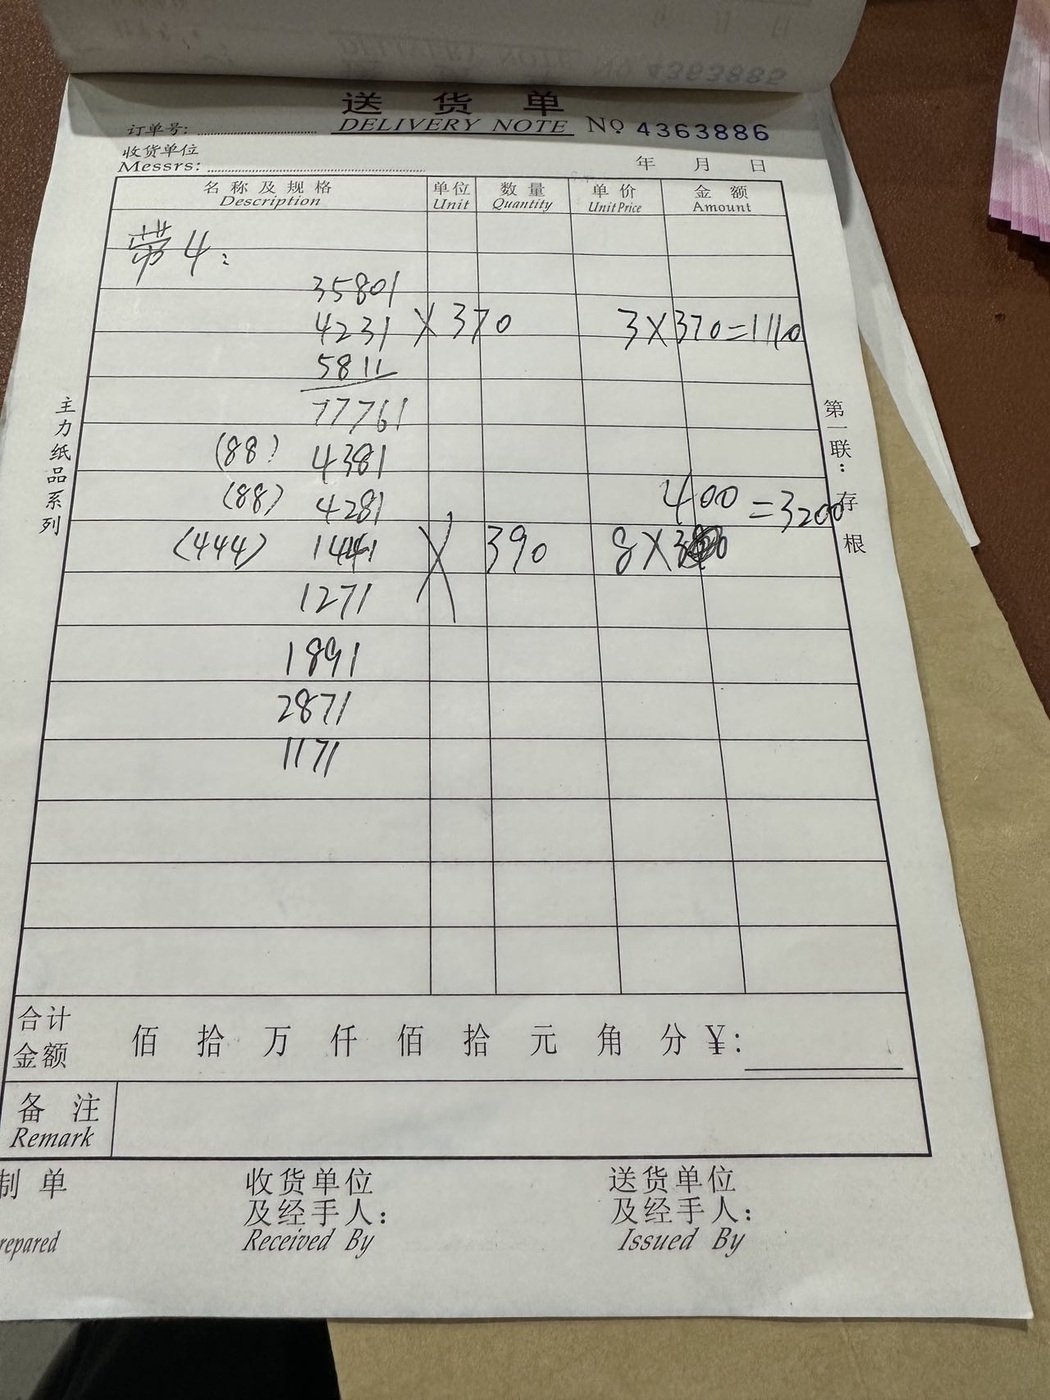 送 货 单
订单号: DELIVERY NOTE № 4363886
收货单位
Messrs: 年 月 日
名 称 及 规 格 单位 数 量 单 价 金 额
Description Unit Quantity Unit Price Amount
带4:
35801
4231 X 370 3X370=1110
5811
77761
(88) 4381
(88) 4281 400 =3200
(444) 1441 X 390 8X
1271
1891
2871
1171
主力纸品系列
第一联: 存根
合计
金额 佰 拾 万 仟 佰 拾 元 角 分 ¥:
备 注
Remark
制 单 收货单位 送货单位
及经手人: 及经手人:
repared Received By Issued By